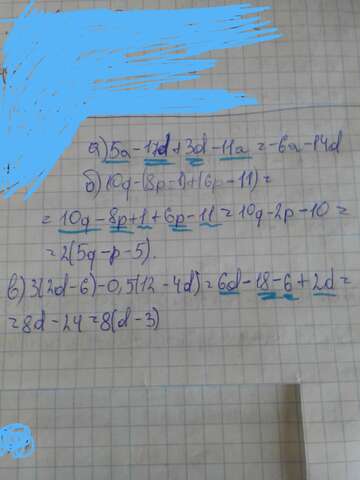 а) 5a - 17d + 3d - 11a = -6a - 14d
б) 10q - (8p - 1) + (6p - 11) =
= 10q - 8p + 1 + 6p - 11 = 10q - 2p - 10 =
= 2(5q - p - 5).
в) 3(2d - 6) - 0,5(12 - 4d) = 6d - 18 - 6 + 2d =
= 8d - 24 = 8(d - 3)